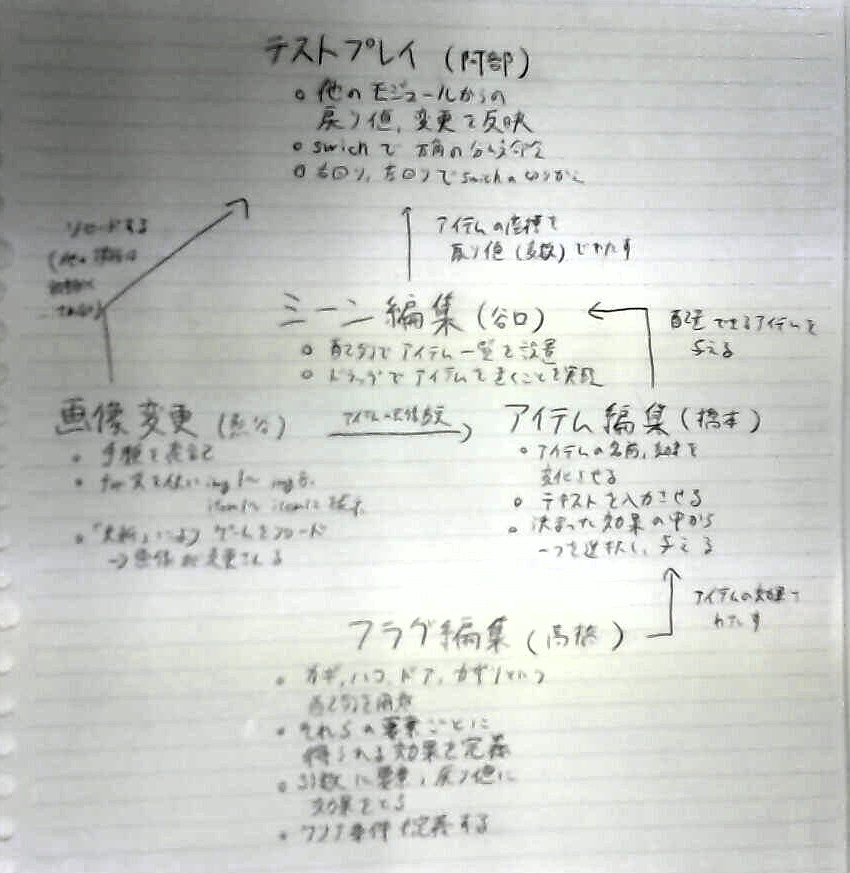 テストプレイ (阿部)
他のモジュールからの
戻り値, 変更を反映
swich で 方角の分岐
右回り, 左回りで swich
リロードする
アイテムの座標を
戻り値 (多数) でわたす
シーン編集 (谷口)
配列で アイテム一覧を設置
ドラッグで アイテムを置くことを実現
配置できるアイテムを
与える
画像変更
アイテム
アイテム編集 (橋本)
手順を表記
for文を使い img1〜 img6.
item1〜
「更新」 ゲームをリロード
→画像が変更される
アイテムの名前, 効果を
変化させる
テキストを入力させる
決まった効果の中から
一つを選択し, 与える
アイテムの効果を
わたす
フラグ編集 (高橋)
カギ, ハコ, ドア, カザリといった
配列を用意
それらの要素ごとに
得られる効果を定義
引数に要素, 戻り値に
効果をとる
クリア条件を定義する